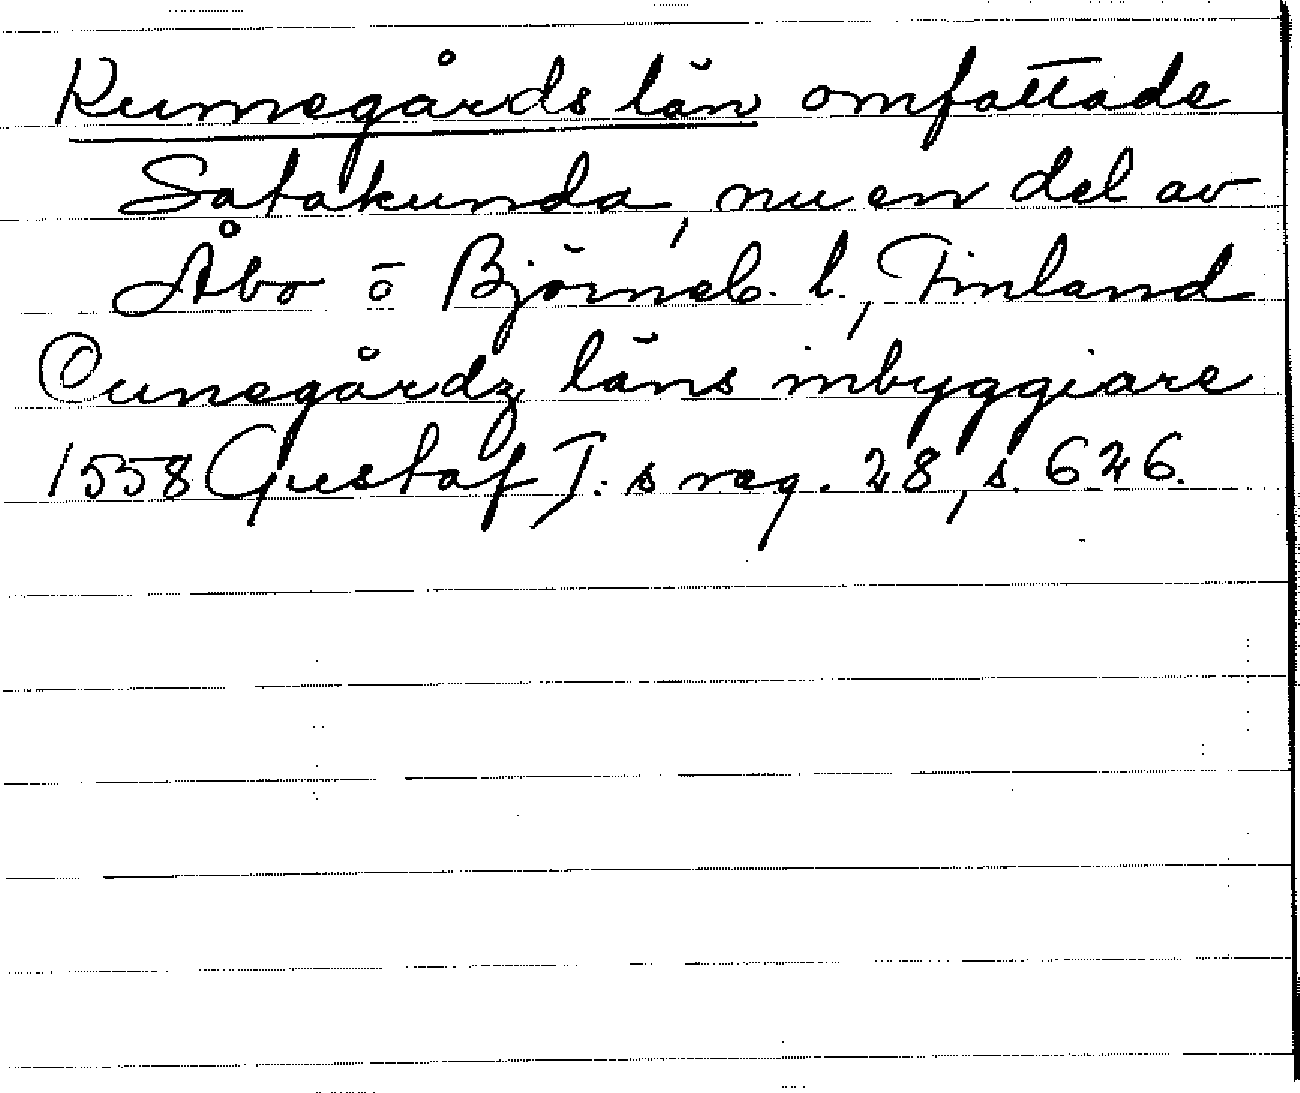 Kumegårds län omfattade
Satakunda, nu en del av
Åbo o Björneb. l., Finland
Cunegårdz läns inbyggiare
1558 Gustaf I:s reg. 28, s. 626.